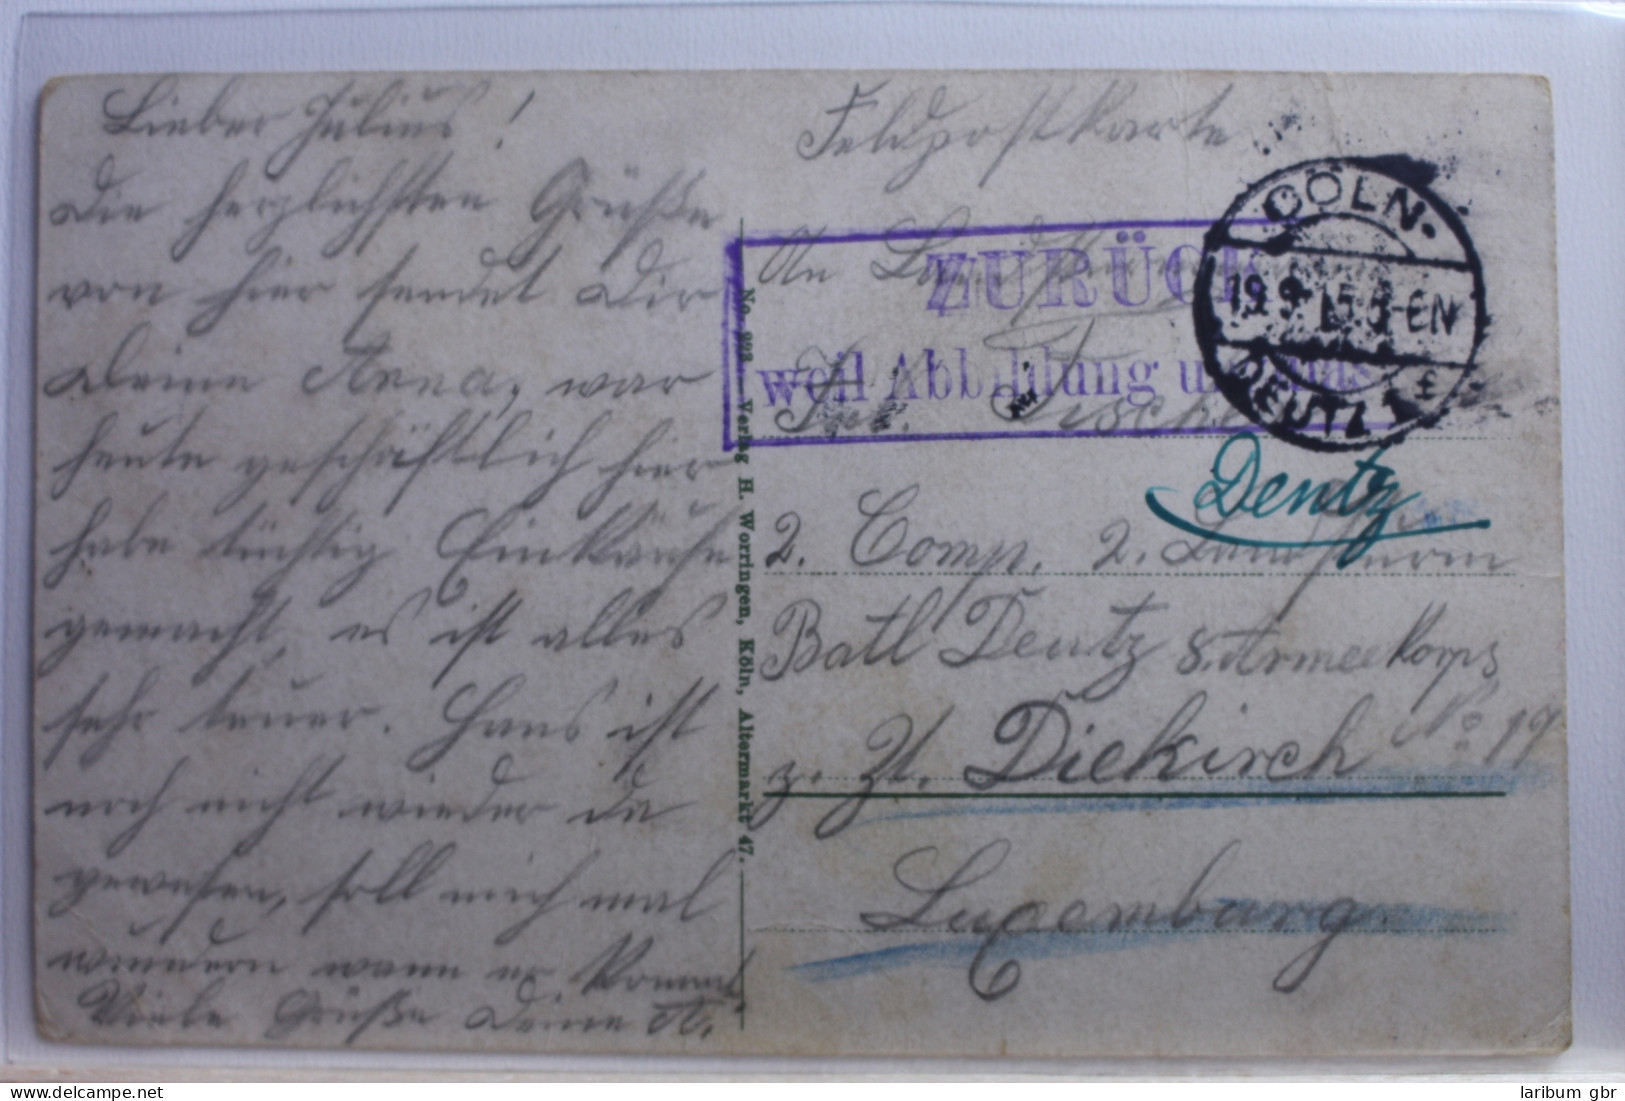 Lieber Julius!
Die herzlichsten Grüße
von hier sendet Dir
Deine Anna, war
heute geschäftlich hier
habe tüchtig Einkäufe
gemacht, es ist alles
sehr teuer. Hans ist
noch nicht wieder da
gewesen, soll mich mal
wundern wann er kommt
Viele Grüße Deine A.
No. 223 Verlag H. Worringen, Köln, Altermarkt 47.
Feldpostkarte
An
ZURÜCK
weil Abbildung
CÖLN.
19.9.15.5-6N
DEUTZ 1 f
Deutz
2. Comp. 2. Landsturm
Batl Deutz 8. Armeekorps
z. Zt. Diekirch No 19
Luxemburg
Delcampe.net
laribum gbr